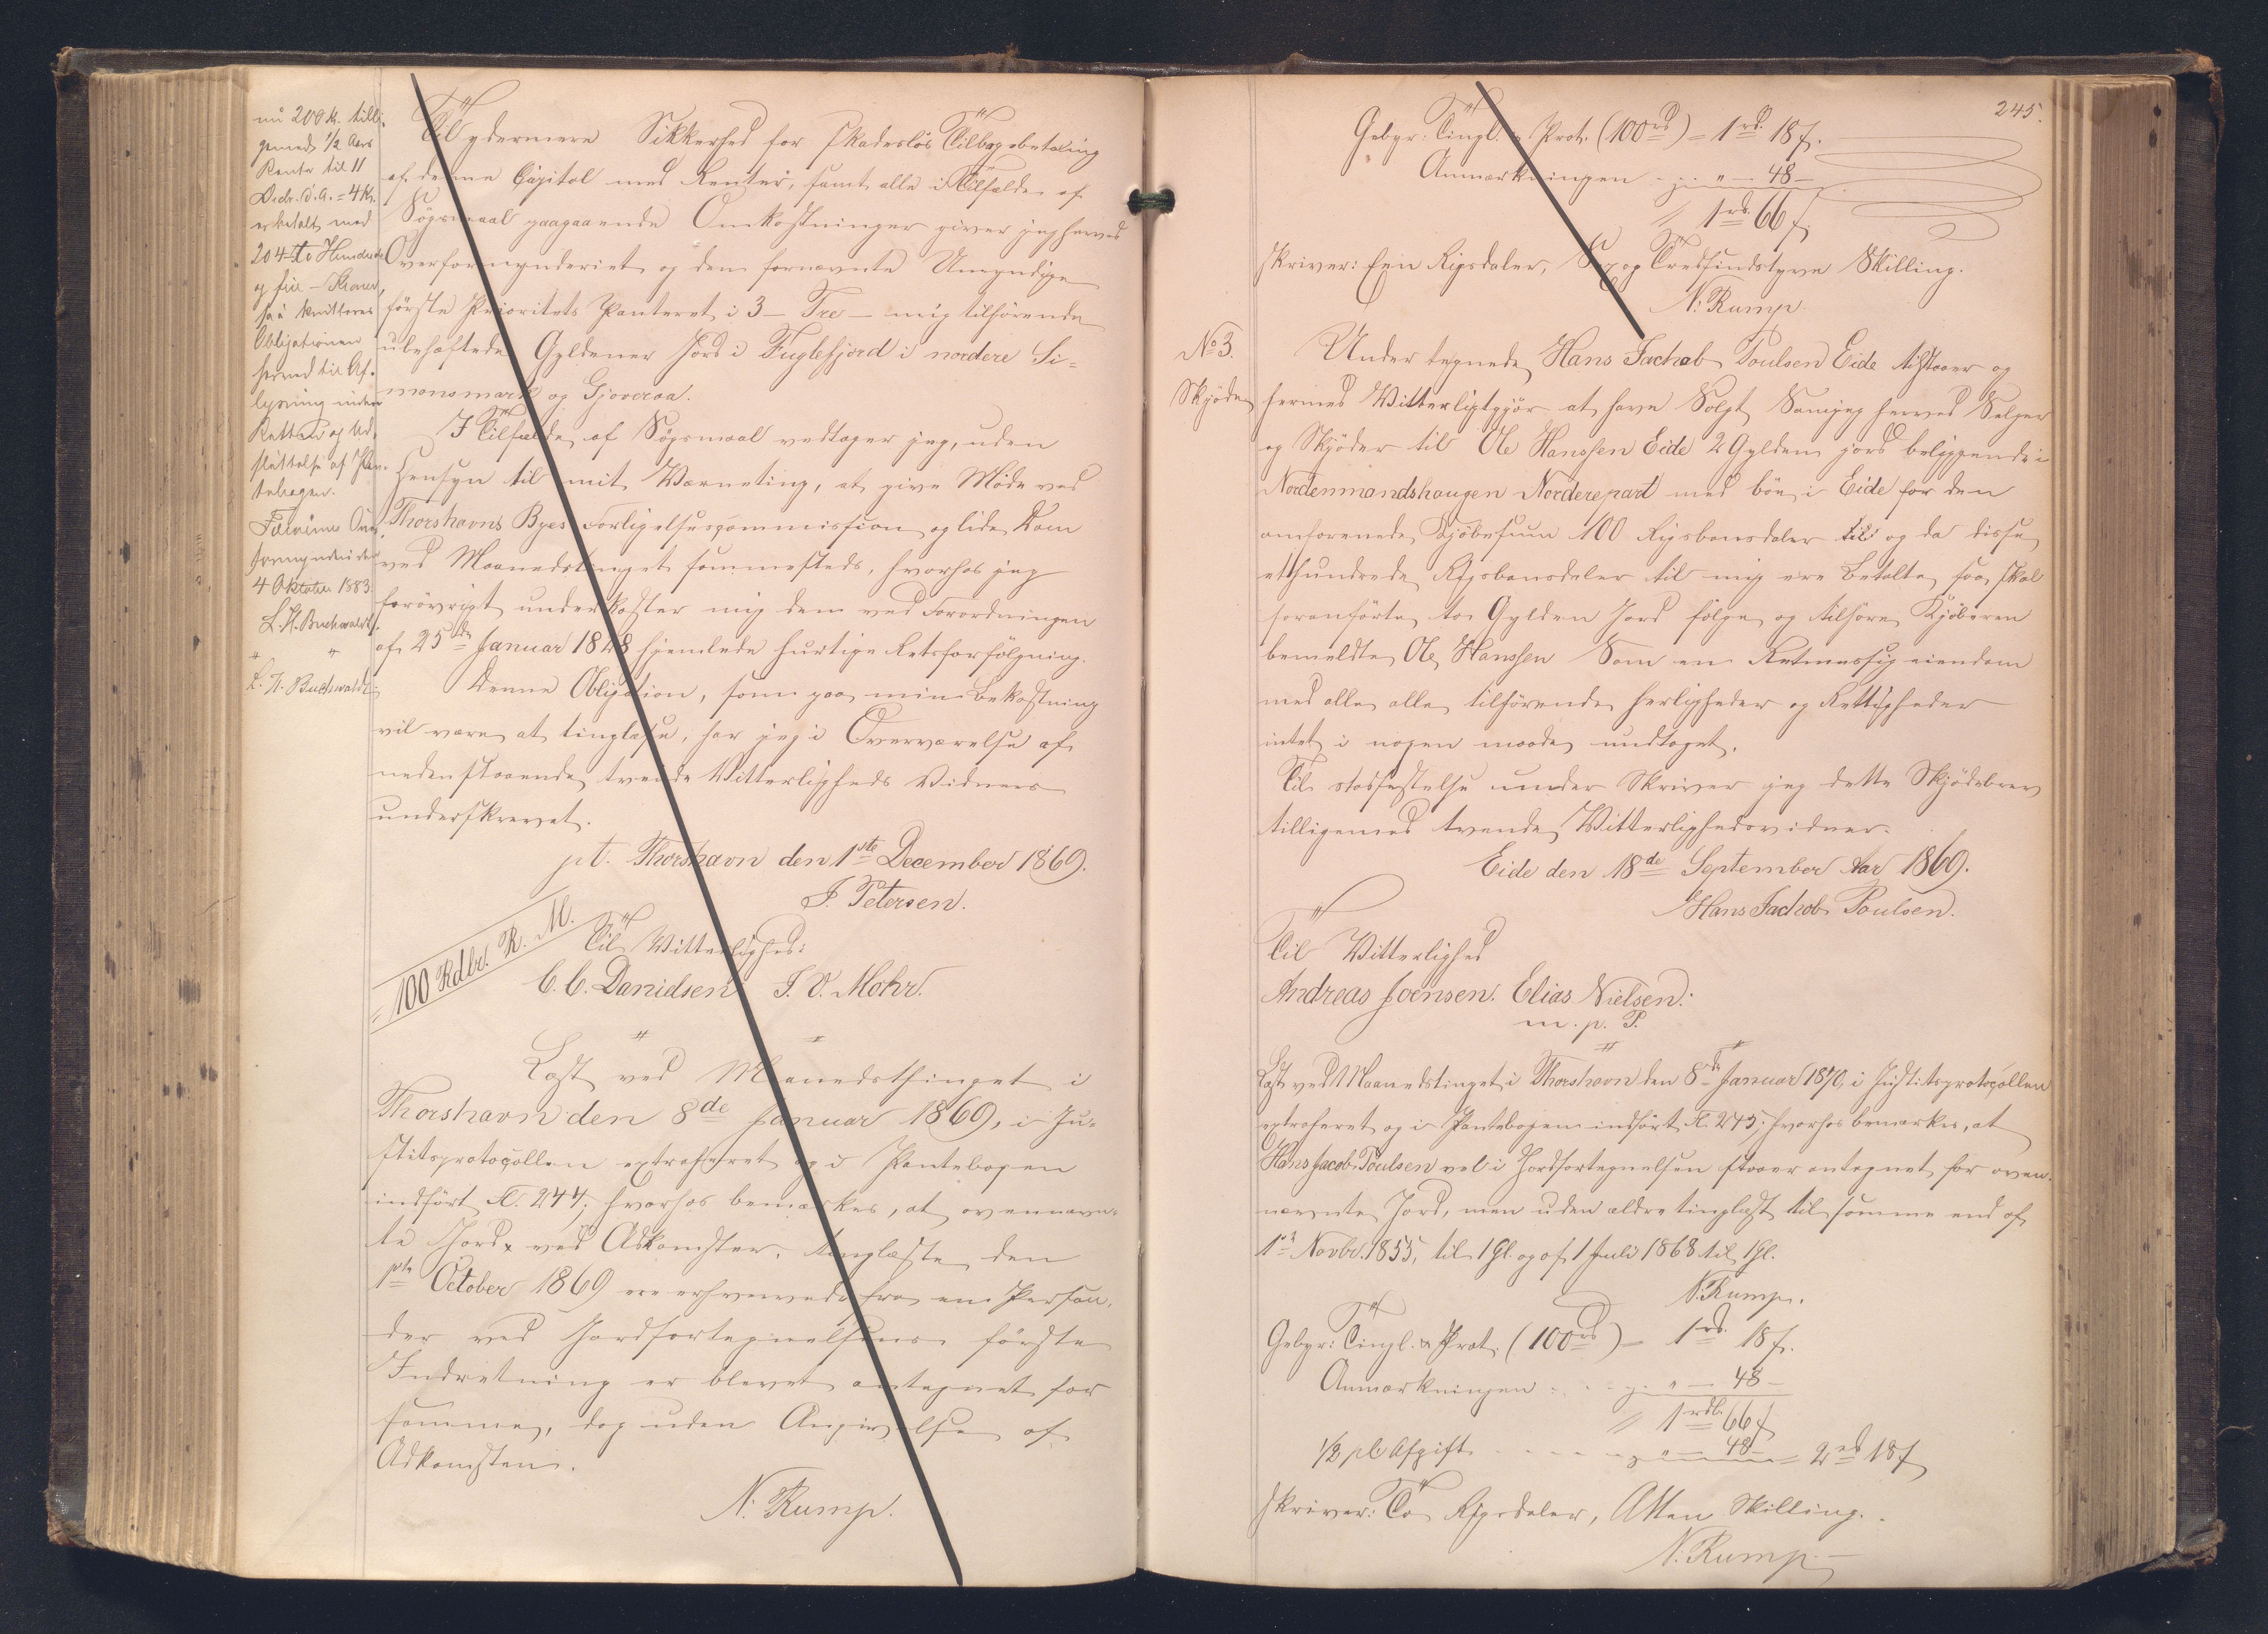 nu 200 Kr. tilli-
gemed 1/2 Aars
Rente til 11
Decbr. d. A. = 4 Kr.
er betalt med
204 - to Hundrede
og fire - Kroner,
saa kvitteres
Obligationen
herved til Af-
lysning inden
Retten og Ud-
slettelse af Pan-
tebogen.
Færøernes Over-
formynderi den
4 Oktober 1883.
L. H. Buchwaldt
" "
L. H. Buchwaldt
Til ydermere Sikkerhed for skadeslös Tilbagebetaling
af denne Capital med Renter, samt alle i Tilfælde af
Sögsmaal paagaaende Omkostninger giver jeg herved
Overformynderiet og den fornævnte Umyndige
förste Prioritets Panteret i 3 - Tre - mig tilhörende
ubehæftede Gylden Jord i Fuglefjord i nordere Si-
monsmark og Gjoveraa.
I Tilfælde af Sögsmaal vedtager jeg, uden
Hensyn til mit Værneting, at give Möde ved
Thorshavns Byes Forligelsescommission og lide Dom
ved Maanedstinget sammesteds, hvorhos jeg
forövrigt underkaster mig den ved Forordningen
af 25de Januar 1828 hjemlede hurtige Retsforfölgning.
Denne Obligation, som paa min Bekostning
vil være at tinglæse, har jeg i Overværelse af
nedenstaaende tvende Vitterligheds Vidner
underskrevet.
pt. Thorshavn den 1ste December 1869.
J. Petersen.
= 100 Rdlr. R. M.
Til Vitterlighed:
C. C. Danielsen J. V. Mohr.
Læst ved Maanedsthinget i
Thorshavn den 8de Januar 1869, i Ju-
stitsprotocollen extraheret og i Pantebogen
indfört Fl. 244; hvorhos bemærkes, at ovennævn-
te Jord ved Adkomster, tinglæste den
1ste October 1869 ere erhvervede fra en Person,
der ved Jordfortegnelsens förste
Indretning er blevet antegnet for
samme, dog uden Angivelse af
Adkomsten.
N. Rump.
245.
Gebyr: Tingl. & Prot. (100rd) = 1rd. 18 s.
Anmærkningen - " - 48 -
1rd. 66 s.
skriver: Een Rigsdaler, Sex og Tredsindstyve Skilling.
N. Rump
No 3.
Skjöde
Under tegnede Hans Jachob Poulsen Eide tilstaaer og
hermed Witterligtgjör at have Solgt Som jeg herved Selger
og Skjöder til Ole Hanssen Eide 2 Gylden jord beliggende i
Nordenmandshaugen Norderepart med böe i Eide for den
omforenede Kjöbesum 100 Rigsbansdaler til og da disse
etthundrede Rigsbansdaler til mig ere Betalte, saa skal
foranförte to Gylden Jord fölge og tilhöre Kjöberen
bemeldte Ole Hanssen Som en Retmessig eiendom
med alle alle tilhörende herligheder og Rettigheder
intet i nogen maade undtaget.
Til stadfestelse under Skriver jeg dette Skjödebrev
tilligemed tvende Witterlighedsvidner.
Eide den 18de September Aar 1869.
Hans Jachob Poulsen.
Til Vitterlighed
Andreas Joensen. Elias Nielsen.
m. p. P.
Læst ved Maanedstinget i Thorshavn den 8de Januar 1870, i Justitsprotocollen
extraheret og i Pantebogen indfört Fl. 245; hvorhos bemærkes, at
Hans Jacob Poulsen vel i Jordfortegnelsen staaer antegnet for oven-
nævnte Jord, men uden ældre tinglæst til samme end af
1ste Novbr. 1855, til 1 Gl. og af 1 Juli 1868 til 1 Gl.
N. Rump.
Gebyr: Tingl. & Prot. (100rd) = 1rd. 18 s.
Anmærkningen - " - 48 -
1rdl. 66 s
1/2 pCt Afgift - " - 48 - = 2rd 18 s
skriver: To Rigsdaler, Atten Skilling.
N. Rump